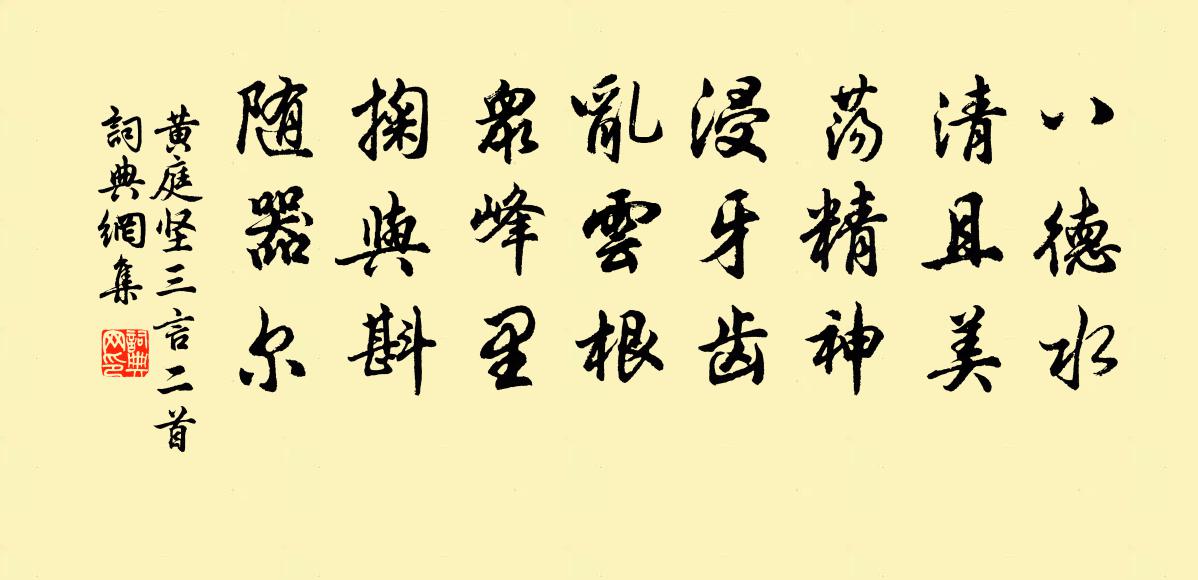 八德水
清且美
荡精神
浸牙齿
亂雲根
眾峰里
掬與斟
随器尔
黄庭坚三言二首
詞典網集
詞典网印